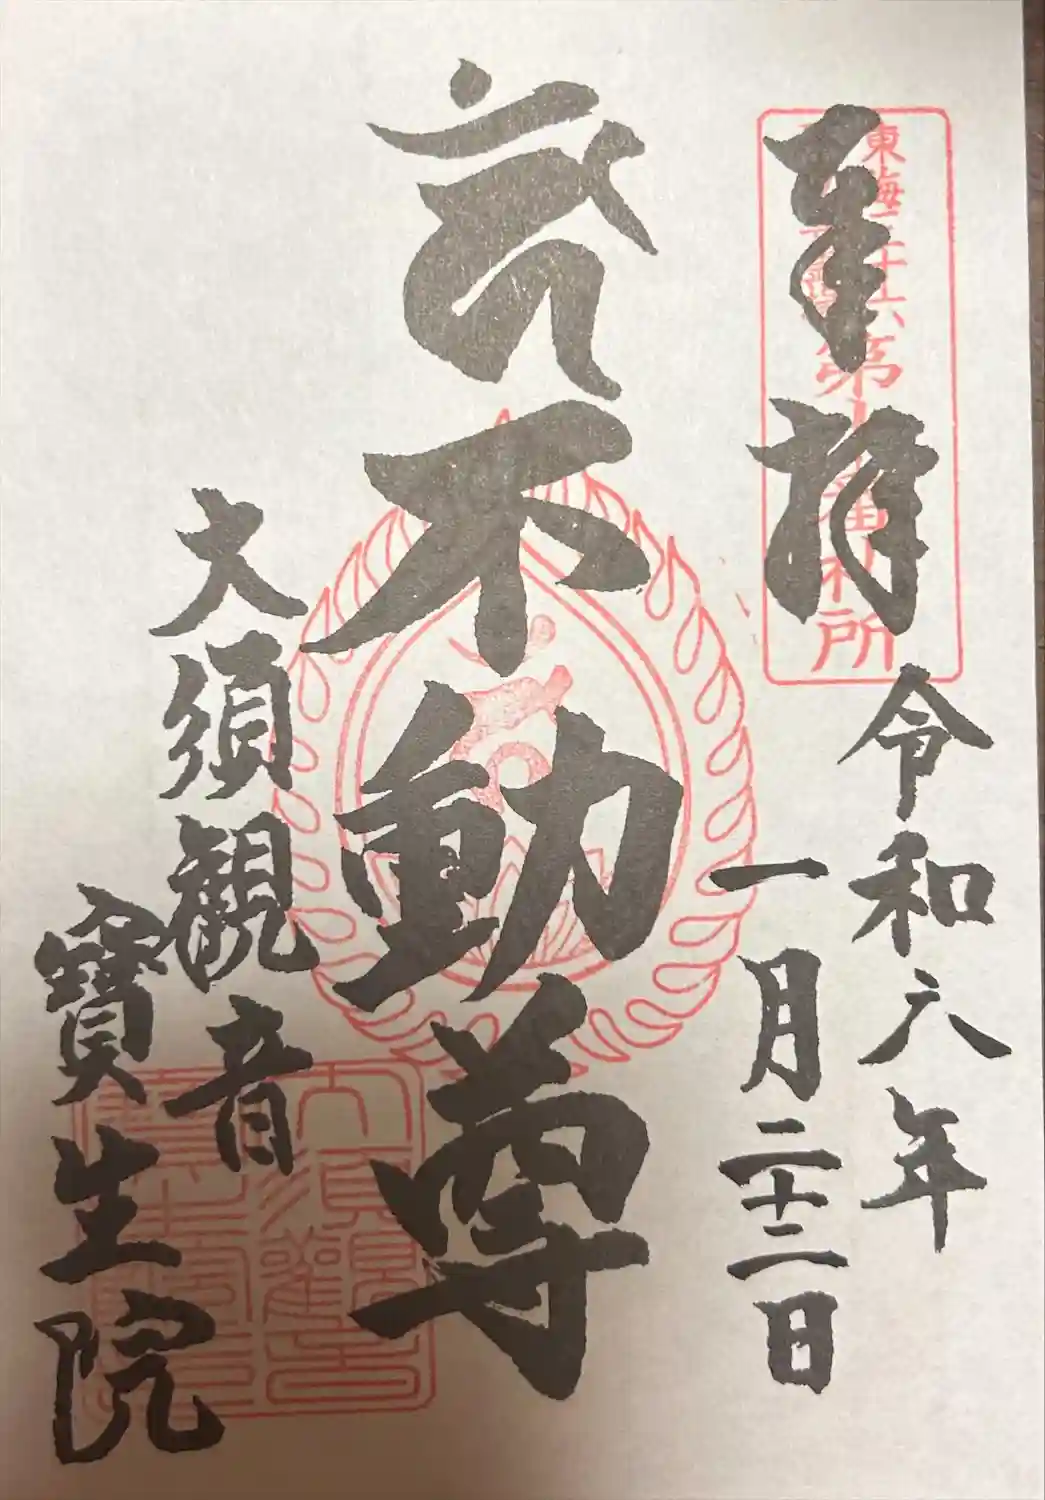 奉拝
令和六年
一月二十二日
不動尊
大須観音
寶生院
東海三十六
不動尊
第
札所
大須観音